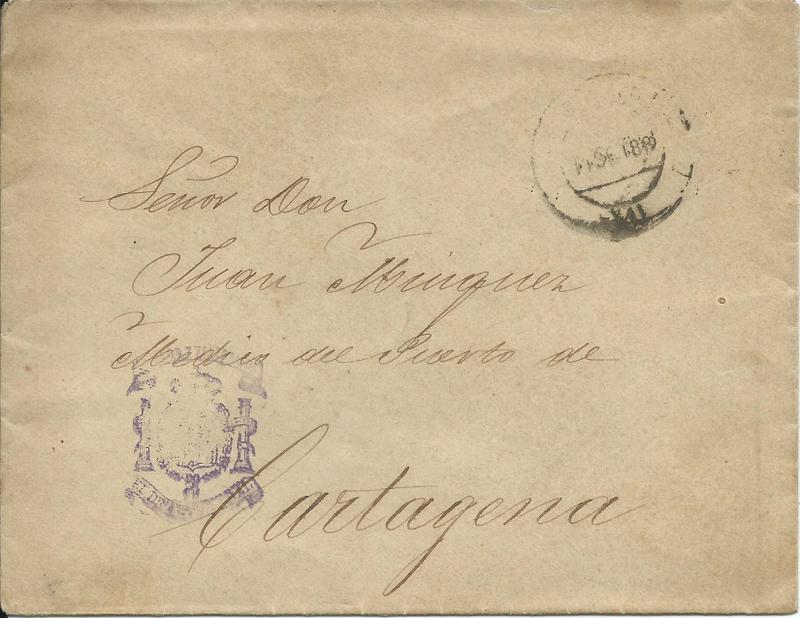 Señor Don
Juan Minguez
Medico del Puerto de
Cartagena